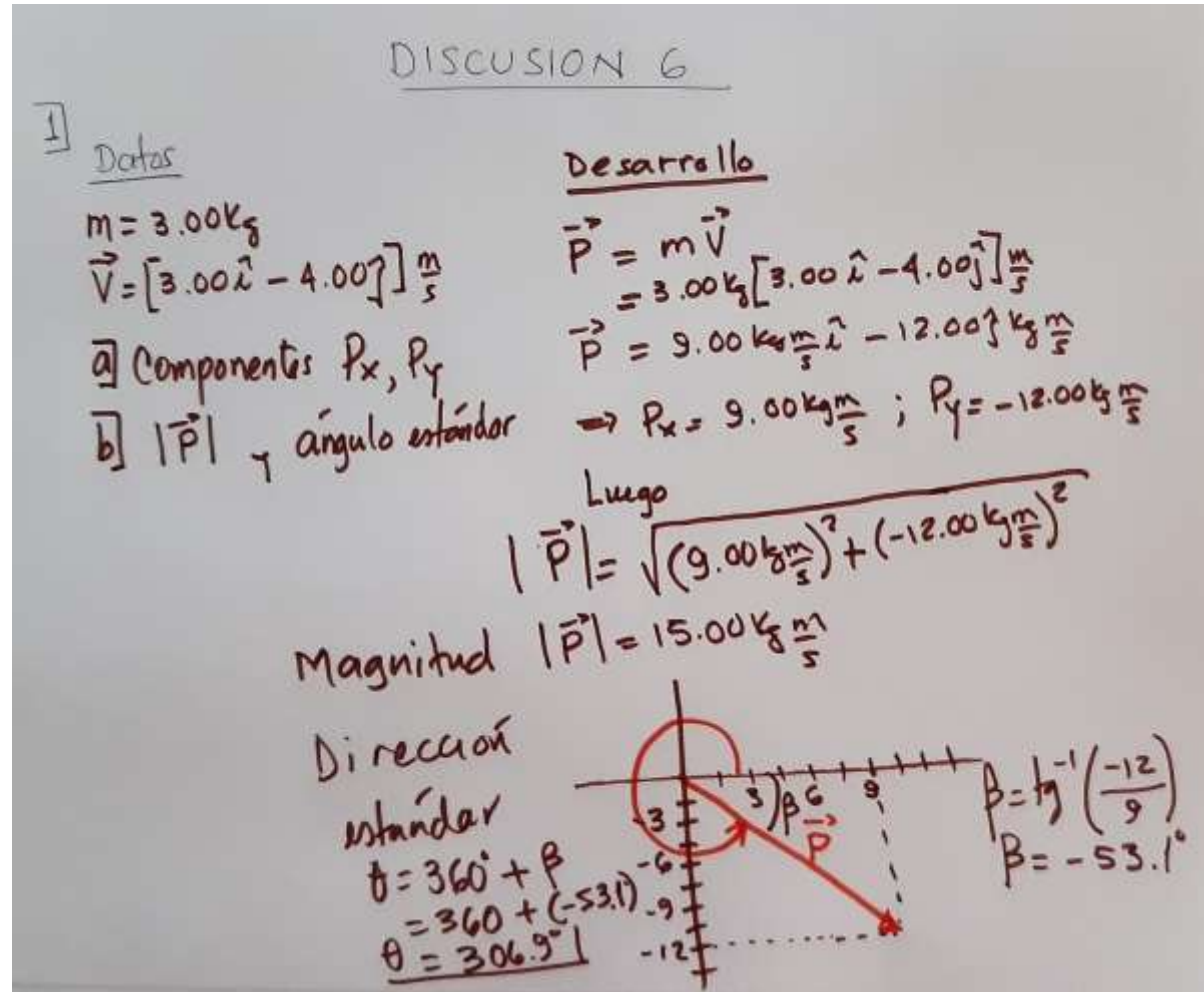 DISCUSION 6
1]
Datos
m = 3.00 Kg
V⃗ = [3.00 î - 4.00 ĵ] m/s
a] Componentes Px, Py
b] |P⃗| y ángulo estándar
Desarrollo
P⃗ = m V⃗
= 3.00 kg [3.00 î - 4.00 ĵ] m/s
P⃗ = 9.00 kg m/s î - 12.00 ĵ kg m/s
⇒ Px = 9.00 kg m/s ; Py = -12.00 kg m/s
Luego
|P⃗| = √((9.00 kg m/s)² + (-12.00 kg m/s)²)
Magnitud |P⃗| = 15.00 Kg m/s
Dirección
estándar
θ = 360° + β
= 360 + (-53.1)
θ = 306.9°
3 β 6 9
P⃗
-3
-6
-9
-12
β = tg⁻¹(-12/9)
β = -53.1°